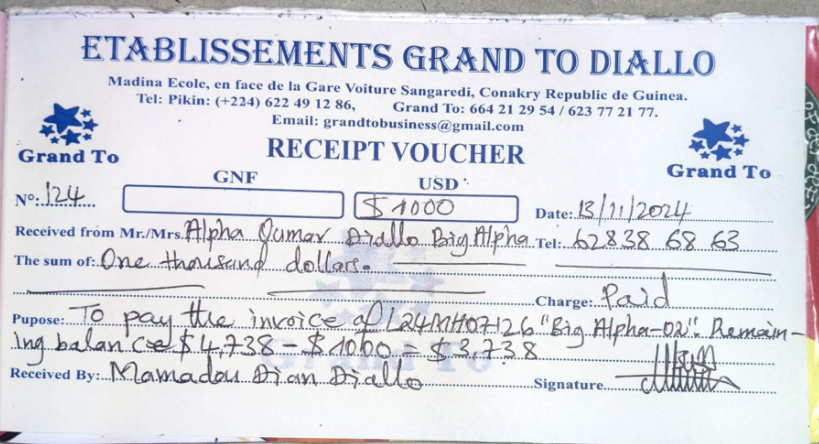 ETABLISSEMENTS GRAND TO DIALLO
Madina Ecole, en face de la Gare Voiture Sangaredi, Conakry Republic de Guinea.
Tel: Pikin: (+224) 622 49 12 86, Grand To: 664 21 29 54 / 623 77 21 77.
Email: grandtobusiness@gmail.com
Grand To RECEIPT VOUCHER Grand To
GNF USD
N°: 124 $ 1000 Date: 13/11/2024
Received from Mr./Mrs. Alpha Oumar Diallo Big Alpha Tel: 62838 68 63
The sum of: One thousand dollars.
Charge: Paid
Pupose: To pay the invoice of L24MH07126 "Big Alpha-02". Remain-
ing balance $4,738 - $1000 = $3,738
Received By: Mamadou Dian Diallo Signature